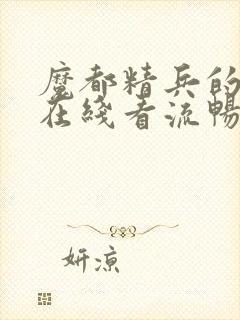 魔都精兵的
在綫看流暢
妍凉